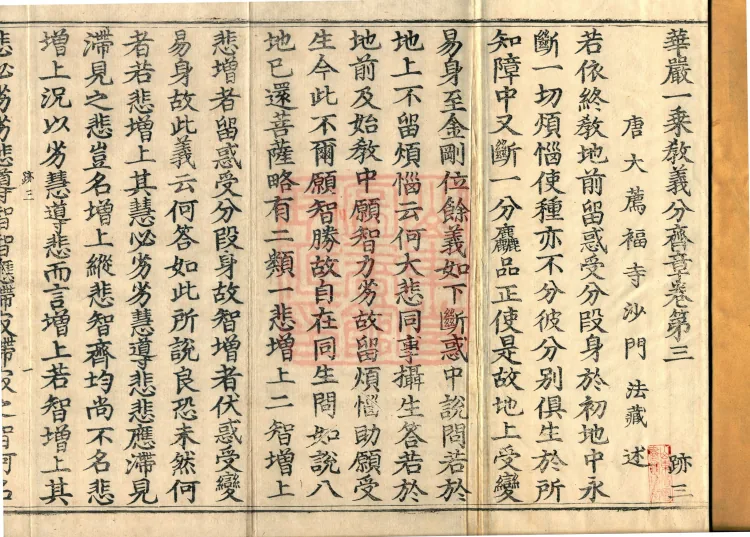 華嚴一乘教義分齊章卷第三 跡三
唐大薦福寺沙門 法藏 述
若依終教地前留惑受分段身於初地中永
斷一切煩惱使種亦不分彼分別俱生於所
知障中又斷一分麤品正使是故地上受變
易身至金剛位餘義如下斷惑中說問若於
地上不留煩惱云何大悲同事攝生答若於
地前及始教中願智力劣故留煩惱助願受
生今此不爾願智勝故自在同生問如說八
地已還菩薩略有二類一悲增上二智增上
悲增者留惑受分段身故智增者伏惑受變
易身故此義云何答如此所說良恐未然何
者若悲增上其慧必劣劣慧導悲悲應滯見
滯見之悲豈名增上縱悲智齊均尚不名悲
增上況以劣慧導悲而言增上若智增上其
跡三 一
悲必劣劣悲導智智應滯寂滯寂之智何名